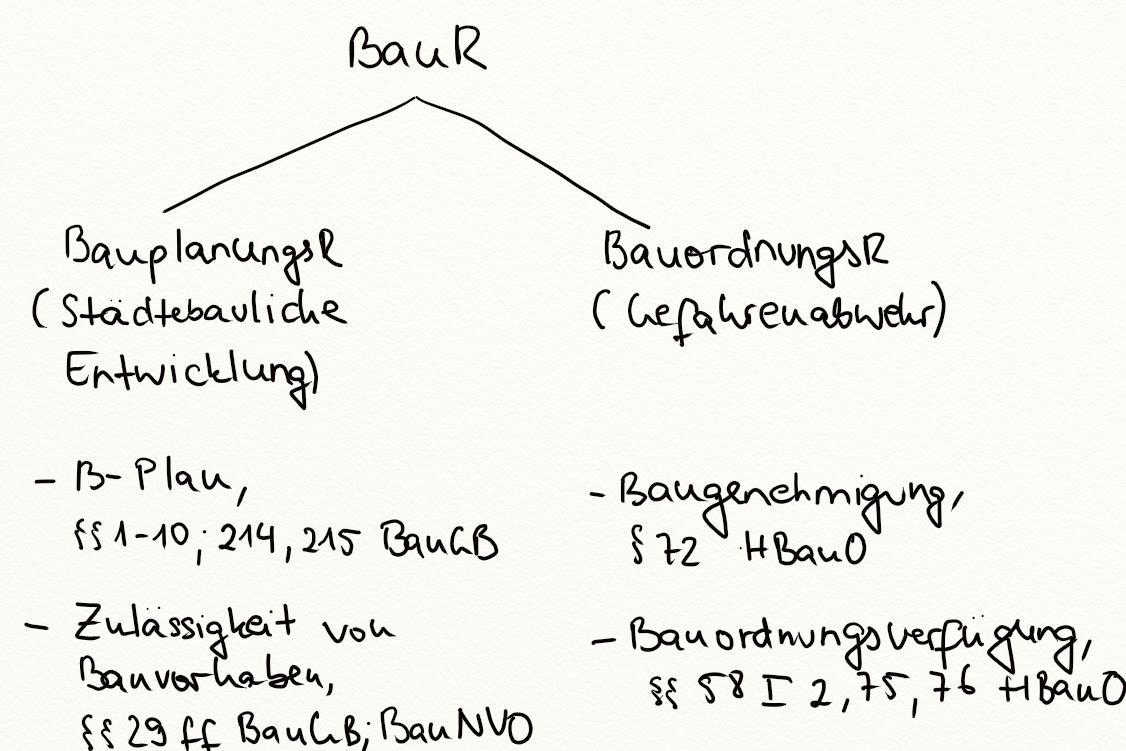 BauR
BauplanungsR
(Städtebauliche
Entwicklung)
- B-Plan,
§§ 1-10; 214, 215 BauGB
- Zulässigkeit von
Bauvorhaben,
§§ 29 ff BauGB; BauNVO
BauordnungsR
(Gefahrenabwehr)
- Baugenehmigung,
§ 72 HBauO
- Bauordnungsverfügung,
§§ 58 I 2, 75, 76 HBauO